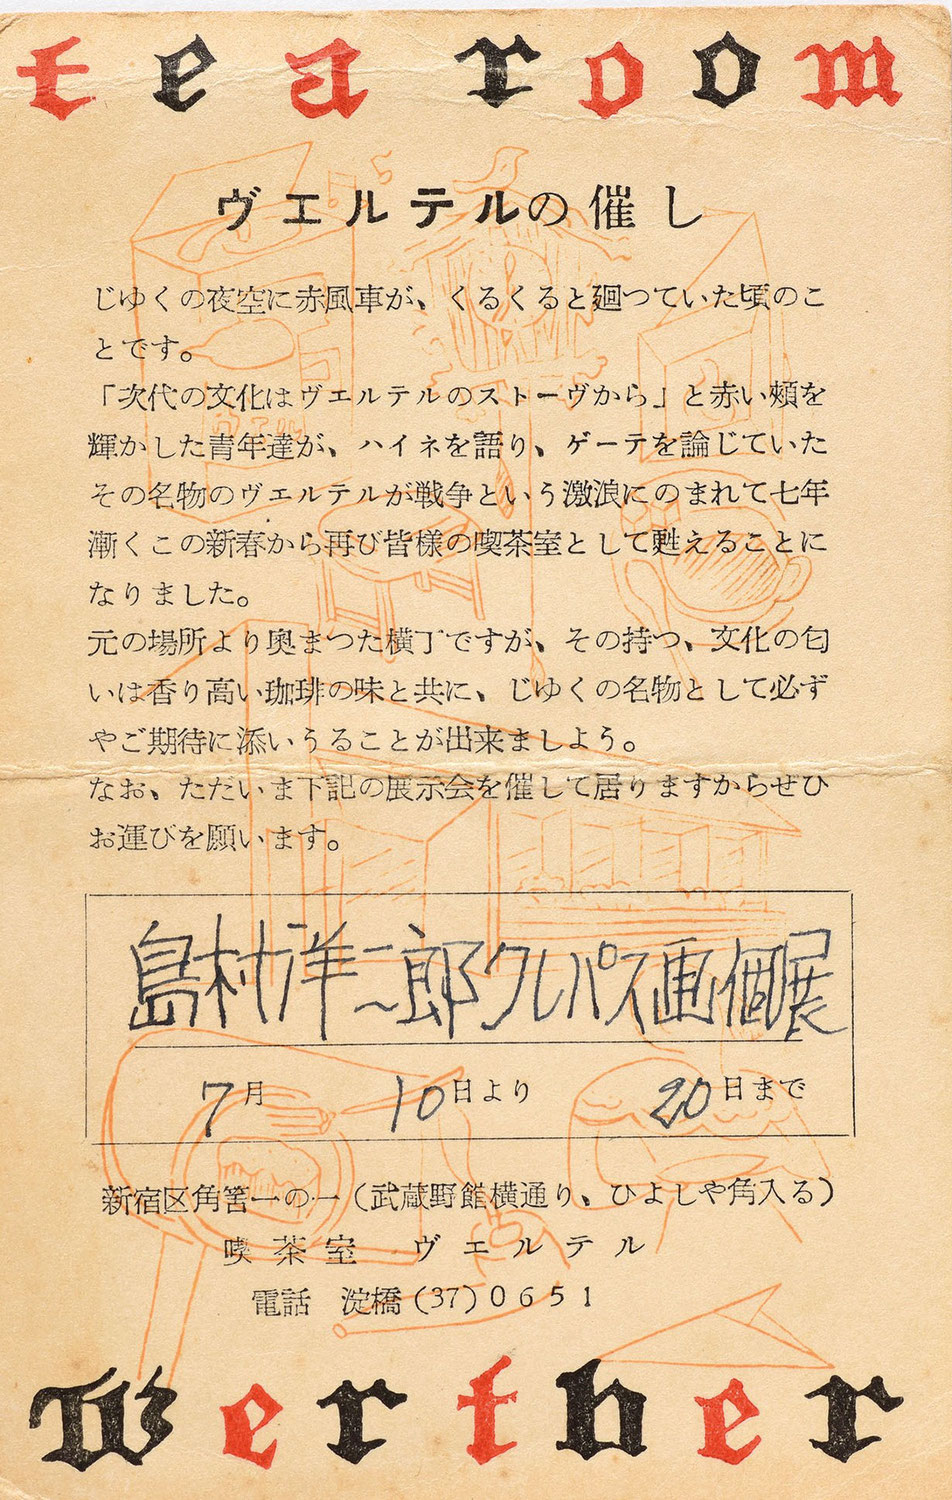 tea room
ヴエルテルの催し
じゆくの夜空に赤風車が、くるくると廻つていた頃のこ
とです。
「次代の文化はヴエルテルのストーヴから」と赤い頰を
輝かした青年達が、ハイネを語り、ゲーテを論じていた
その名物のヴエルテルが戦争という激浪にのまれて七年
漸くこの新春から再び皆様の喫茶室として甦えることに
なりました。
元の場所より奥まつた横丁ですが、その持つ、文化の匂
いは香り高い珈琲の味と共に、じゆくの名物として必ず
やご期待に添いうることが出来ましよう。
なお、ただいま下記の展示会を催して居りますからぜひ
お運びを願います。
島村洋二郎クレパス画個展
7月 10日より 20日まで
新宿区角筈一の一(武蔵野館横通り、ひよしや角入る)
喫茶室 ヴエルテル
電話 淀橋(37)0651
Werther